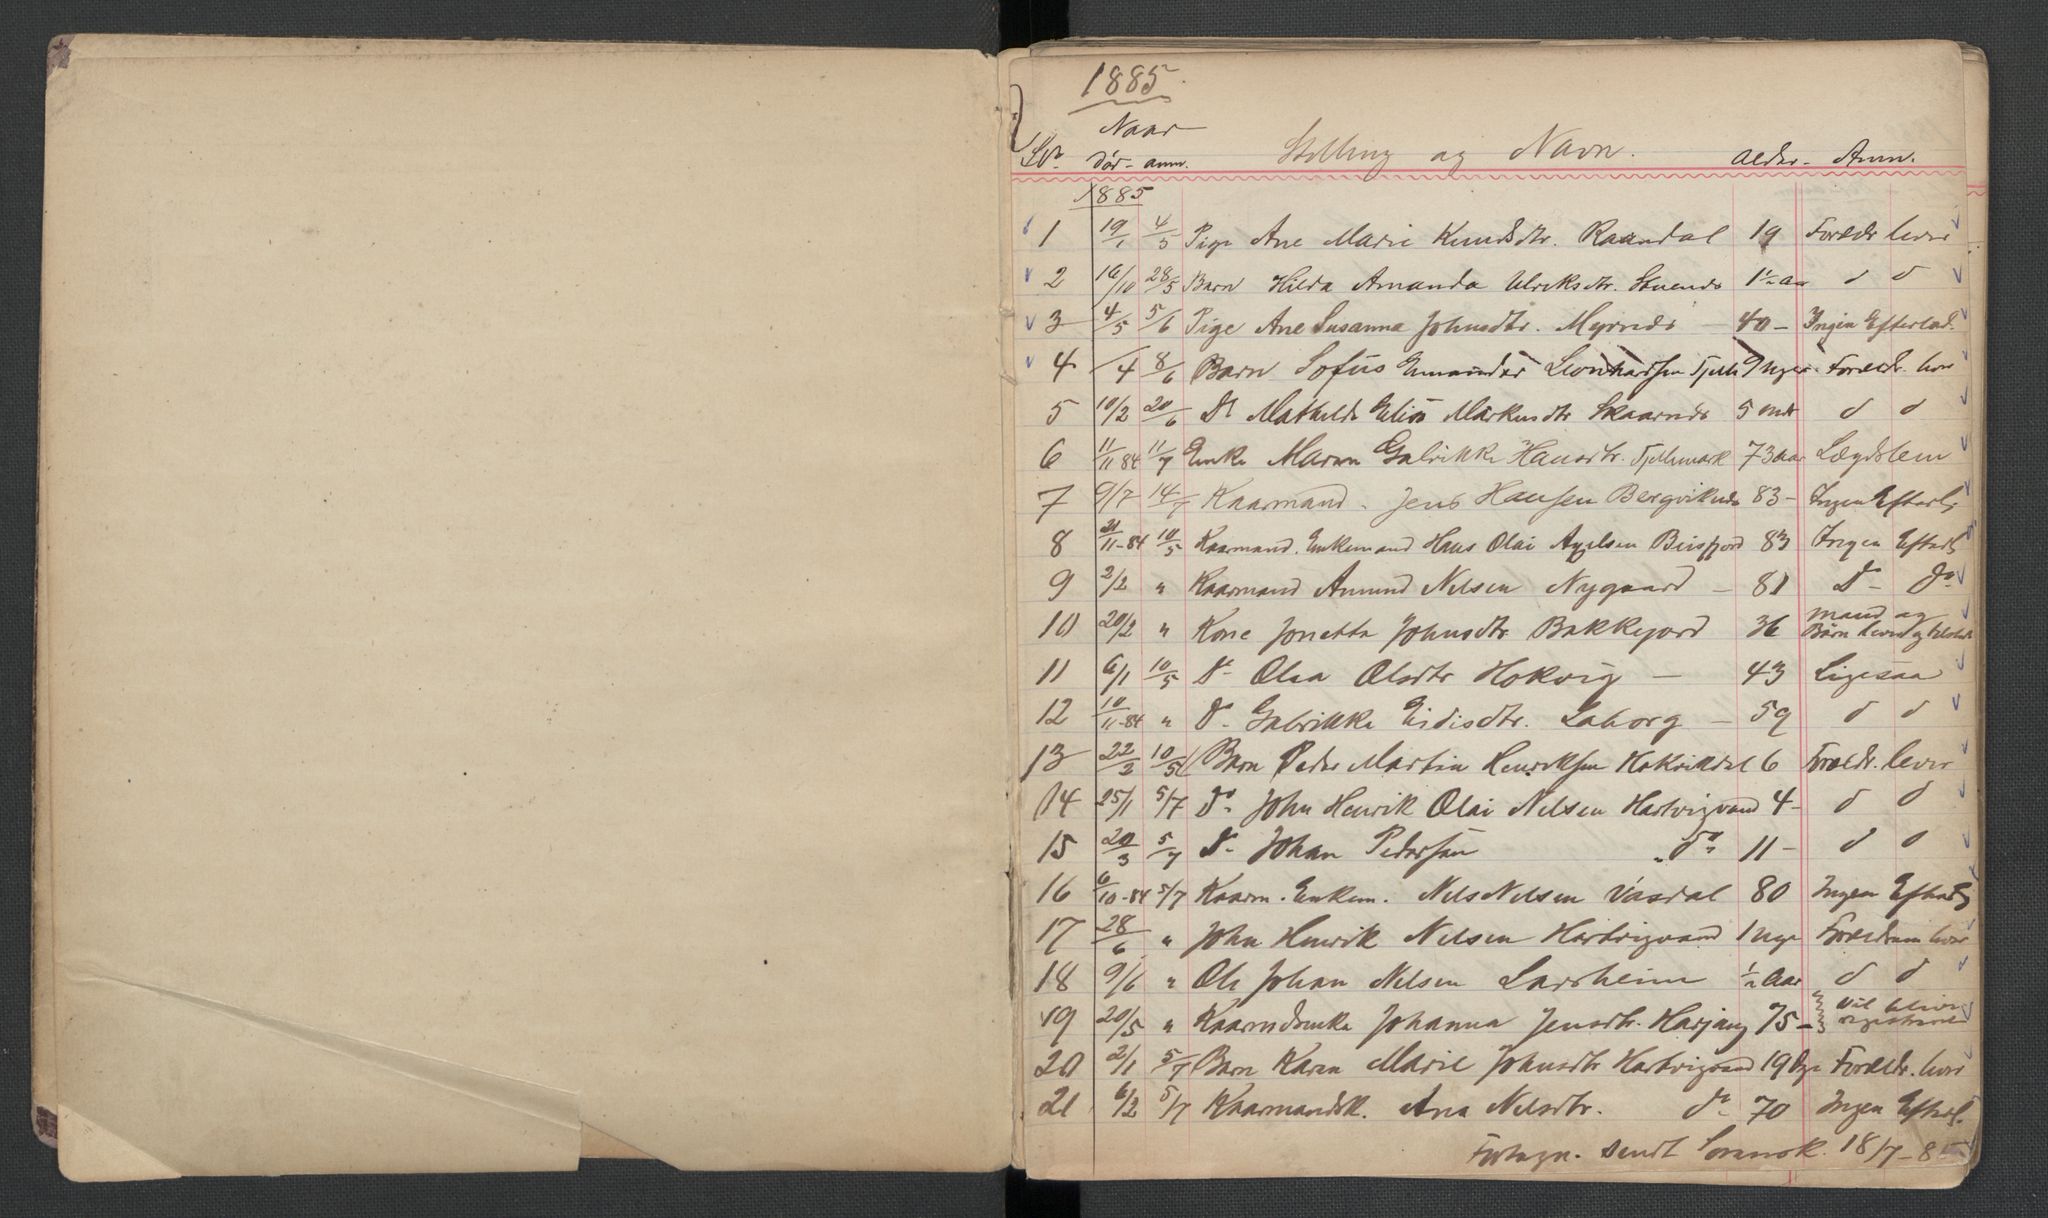 1885.
Naar
Lb. død - anm. Stilling og Navn. Alder - Anm.
1885
1 19/1 4/5 Pige Ane Marie Knudsdtr. Raandal 19 Forældr lever
2 16/10 28/5 Barn Hilda Amanda Ulriksdtr. 1½ Aar d d
3 4/5 5/6 Pige Ane Susanna Johnsdtr. Myrnes - 40 - Ingen Efterlad.
4 /4 8/6 Barn Sofus Leonhardsen 9 Uger - Forældr. lever
5 10/2 20/6 Do Mathilde Markusdtr Skaarnes 5 mdr d d
6 11/11 84 11/7 Enke Maren Gabrikke Hansdtr. Fjellmark 73 Aar Lægdslem
7 9/7 14/7 Kaarmand. Jens Hansen Bergviknes 83 - Ingen Efterl.
8 21/11-84 10/5 Kaarmand. Enkemand Hans Olai Axelsen Beisfjord 83 Ingen Efterl
9 2/2 " Kaarmand Amund Nilsen Nygaard - 81 Do - Do
10 20/2 " Kone Jonetta Johnsdtr Bakkejord 36 Mand og
Børn lever og
11 6/1 10/5 Do Olea Olsdtr Hokvig - 43 Ligesaa
12 10/11-84 " Do. Gabrikke Eidisdtr. Laborg - 59 d d
13 22/3 10/5 Barn Peder Martin Henriksen Hokvikdal 6 Forældr. lever
14 25/1 5/7 Do. John Henrik Olai Nilsen Hartvigvand 4 - d d
15 20/3 5/7 Do - Johan Pedersen " Do " 11 - d d
16 6/10-84 5/7 Kaarm. Enkem. Nils Nilsen Vasdal 80 Ingen Efterl
17 28/6 " John Henrik Nilsen Hartvigvand 1 Uge Forældrene lever
18 9/6 " Ole Johan Nilsen Larsheim ½ Aar d d
19 20/5 " Johanna Jensdtr. Harjang 75 - vil blive
20 2/1 5/7 Barn Karen Marie Johnsdtr Hartvigvand 19 Dge Forældr. lever
21 6/2 5/7 Kaarmandsk. Ana Nilsdtr. Do 70 Ingen Efterl.
Fortegn. sendt Sorensk. 18/7-85